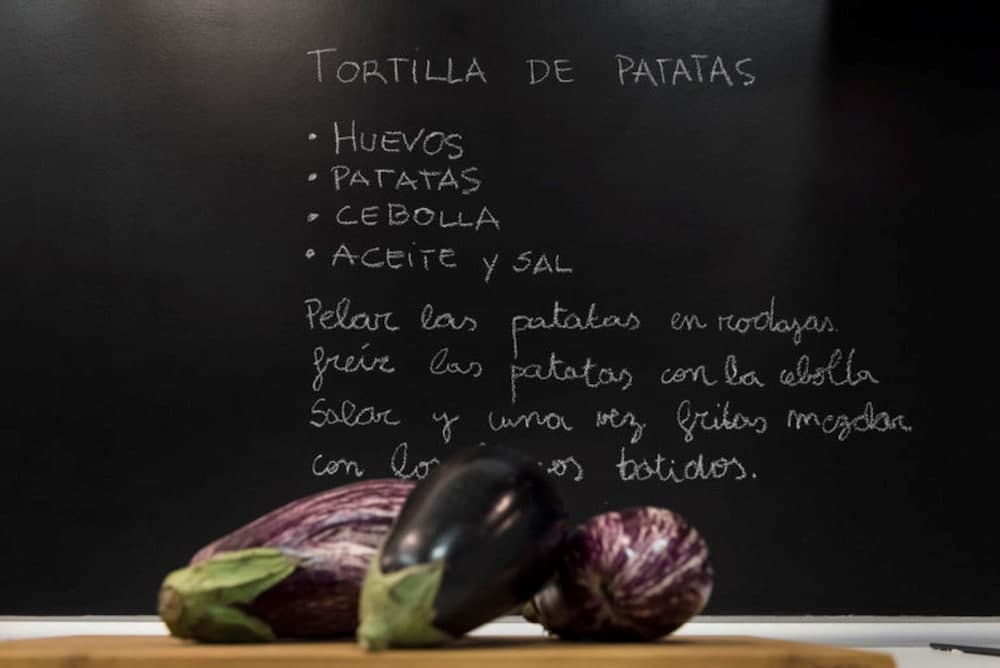 TORTILLA DE PATATAS
• HUEVOS
• PATATAS
• CEBOLLA
• ACEITE y SAL
Pelar las patatas en rodajas.
freír las patatas con la cebolla
Salar y una vez fritas mezclar
con los batidos.